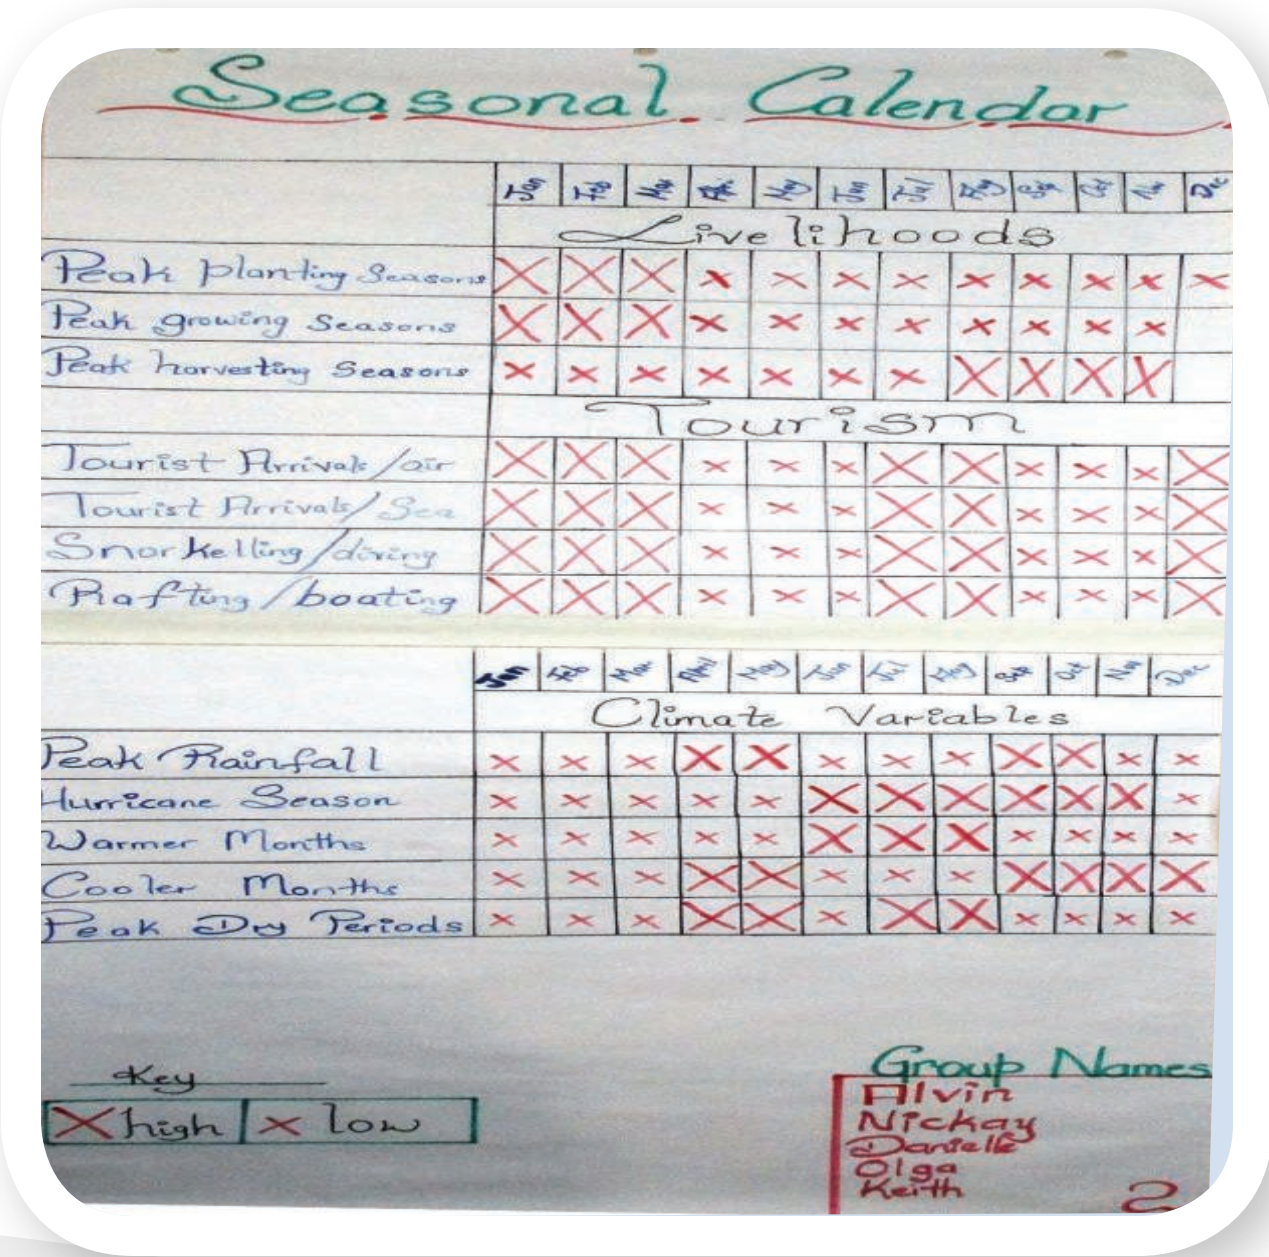 Seasonal Calendar
Jan Feb Mar Apr May Jun Jul Aug Sep Oct Nov Dec
Livelihoods
Peak planting Seasons X X X x x x x x x x x x
Peak growing Seasons X X X x x x x x x x x
Peak harvesting Seasons x x x x x x x X X X X
Tourism
Tourist Arrivals/air X X X x x x X X x x x X
Tourist Arrivals/Sea X X X x x x X X x x x X
Snorkelling/diving X X X x x x X X x x x X
Rafting/boating X X X x x x X X x x x X
Jan Feb Mar April May Jun Jul Aug Sep Oct Nov Dec
Climate Variables
Peak Rainfall x x x X X x x x X X x x
Hurricane Season x x x x x X X X X X X x
Warmer Months x x x x x X X X x x x x
Cooler Months x x x X X x x x X X X X
Peak Dry Periods x x x X X x X X x x x x
Key
X high x low
Group Names
Alvin
Nickay
Danielle
Olga
Keith
2